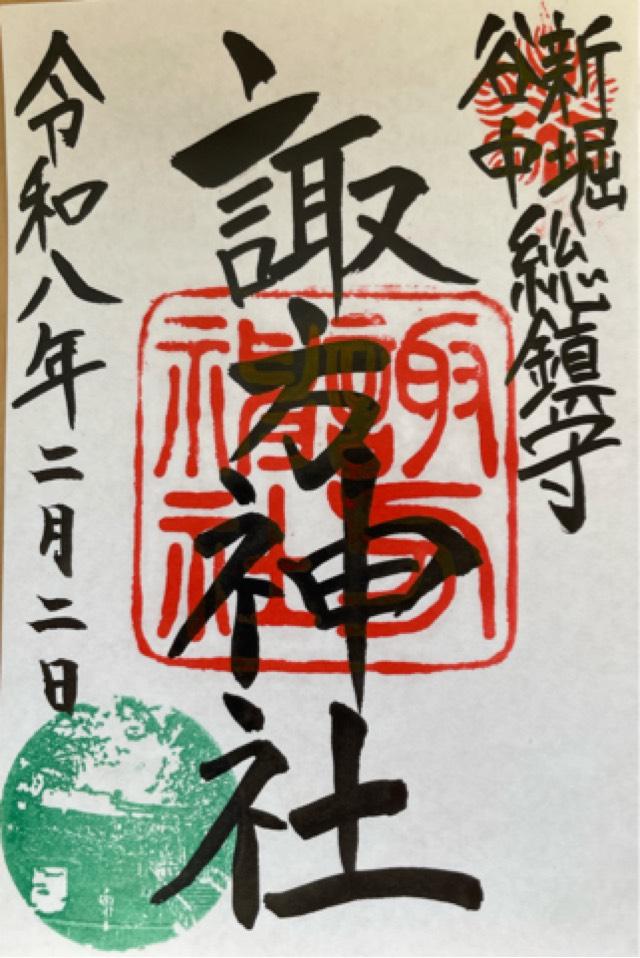 新堀
谷中
総鎮守
諏方神社
諏方神社
令和八年二月二日